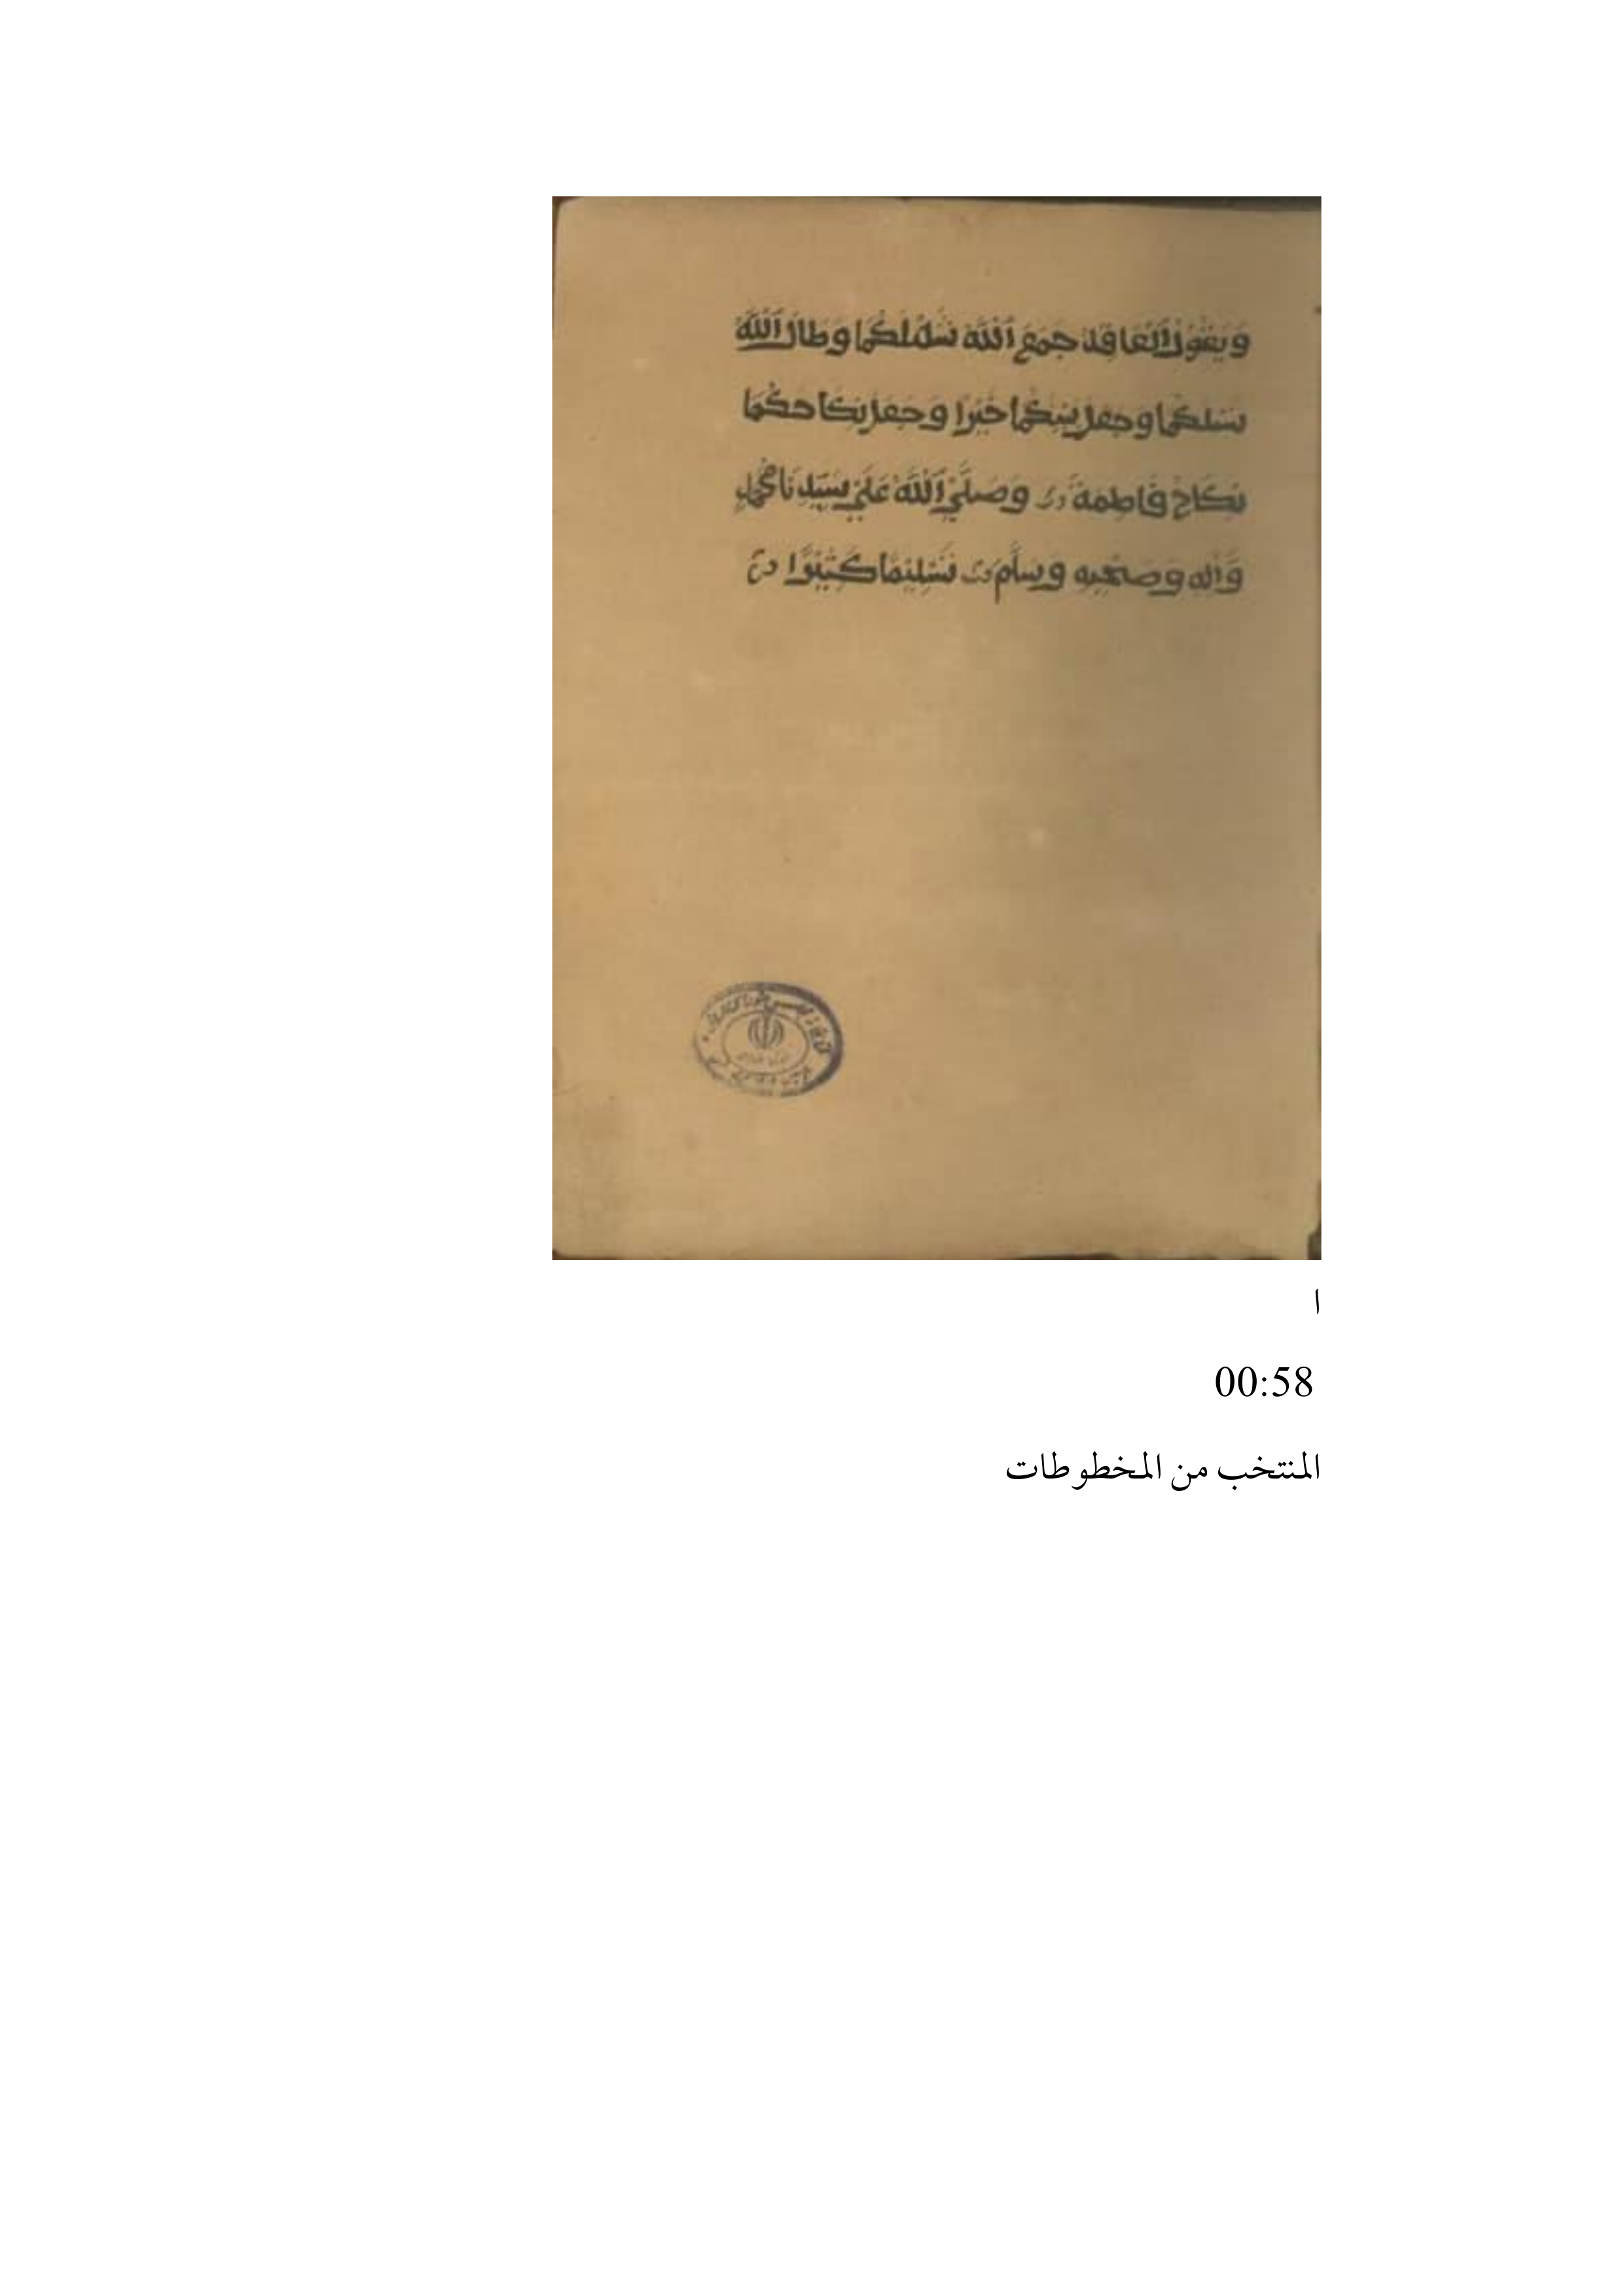 وَيَقُولُ ٱلْعَاقِدُ جَمَعَ ٱللَّهُ شَمْلَكُمَا وَطَالَ ٱللَّهُ
نسلكما وجعل بينكما خَيْرًا وَجعل نِكَاحَكُمَا
نِكَاحَ فَاطِمَة وَصَلَّى ٱللَّهُ عَلَى سَيِّدِنَا مُحَمَّدٍ
وَّءَالِهِ وَصَحْبِهِ وَسَلَّم تَسْلِيْمًا كَثِيْرًا
ا
00:58
المنتخب من المخطوطات